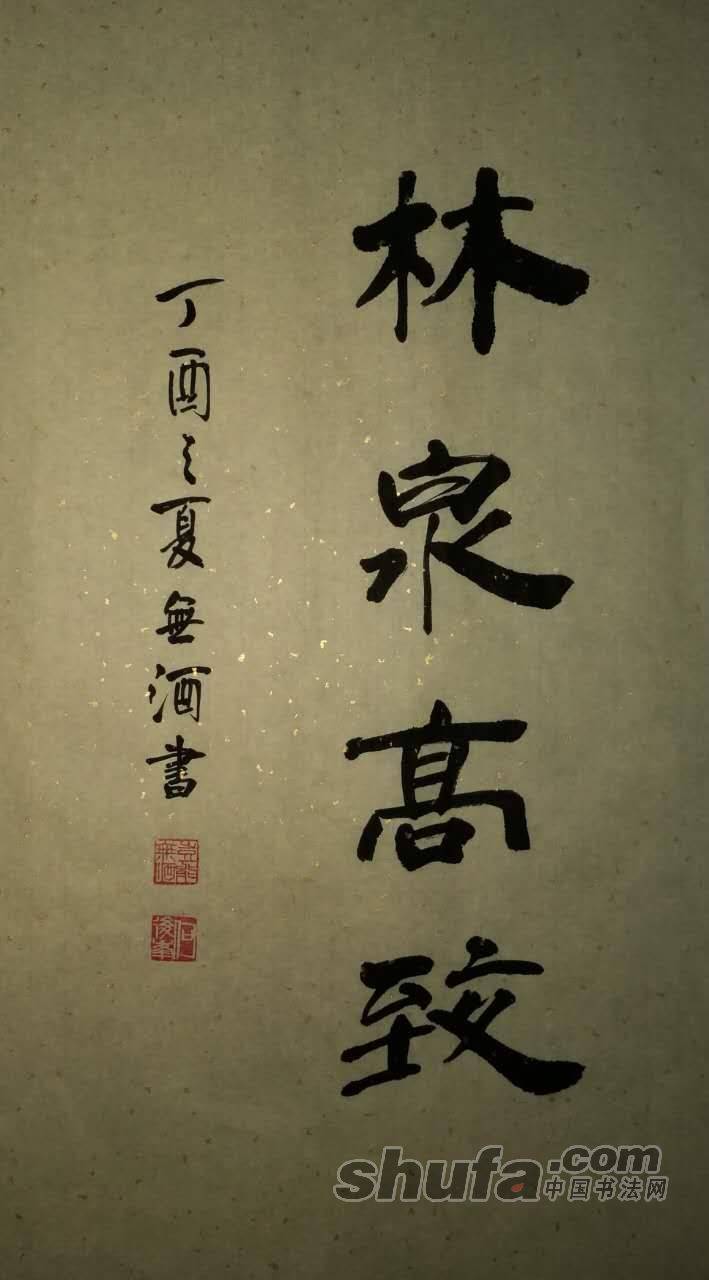 林泉髙致
丁酉之夏無酒書
shufa.com
中国书法网